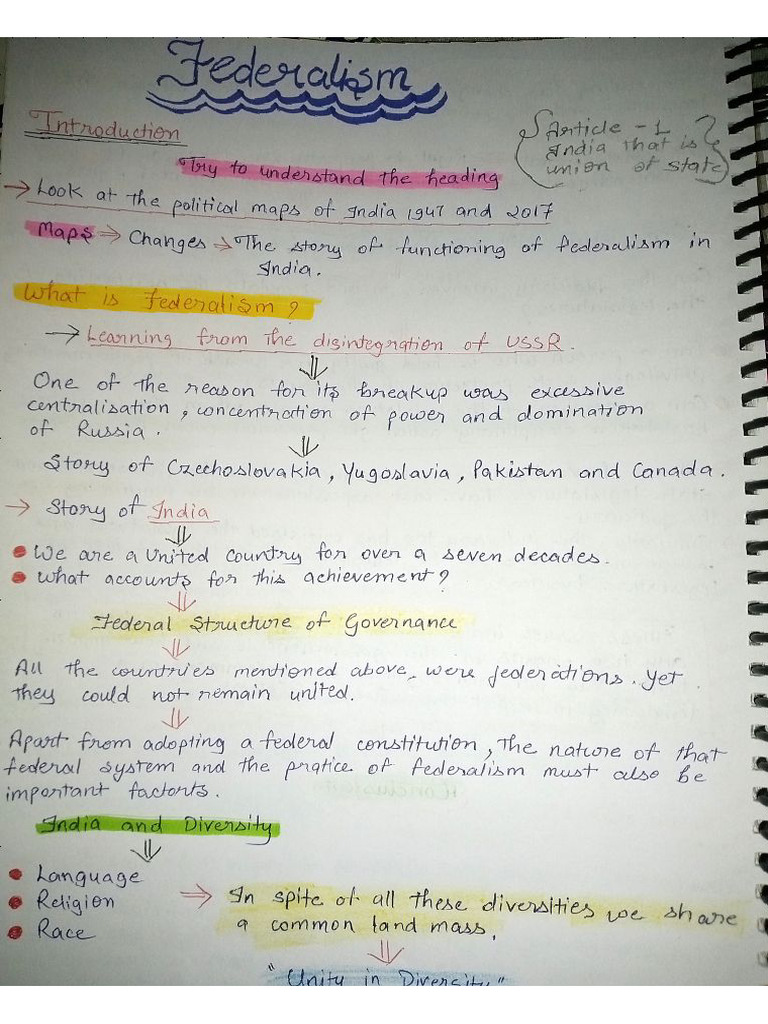 Federalism
Introduction
Article - 1
India that is
union of state
Try to understand the heading
→ Look at the political maps of India 1947 and 2017
Maps ⇒ Changes → The story of functioning of federalism in
India.
What is Federalism?
→ Learning from the disintegration of USSR.
⇓
One of the reason for its breakup was excessive
centralisation, concentration of power and domination
of Russia.
⇓
Story of Czechoslovakia, Yugoslavia, Pakistan and Canada.
→ Story of India
⇓
• We are a United country for over a seven decades.
• What accounts for this achievement?
⇓
Federal Structure of Governance
⇓
All the countries mentioned above, were federations. Yet
they could not remain united.
⇓
Apart from adopting a federal constitution, The nature of that
federal system and the pratice of federalism must also be
important factorts.
India and Diversity
⇓
• Language
• Religion
• Race
⇒ In spite of all these diversities we share
a common land mass.
⇓
"Unity in Diversity"